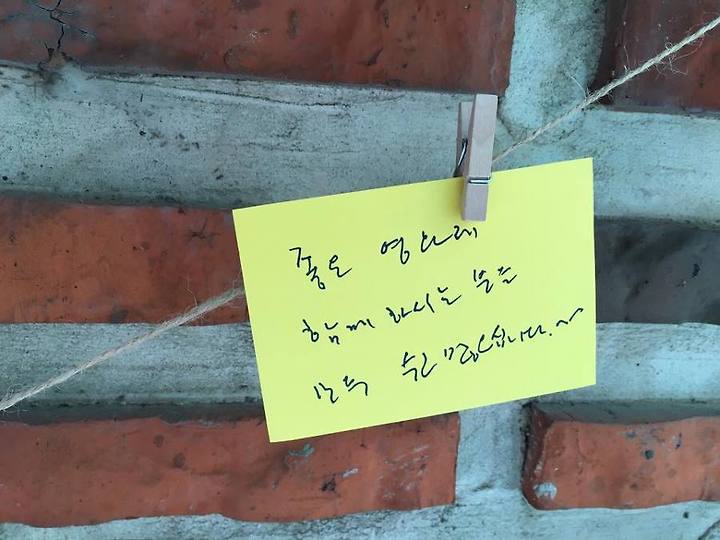 좋은 영화제
함께 하시는 분들
모두 수고 많습니다.~